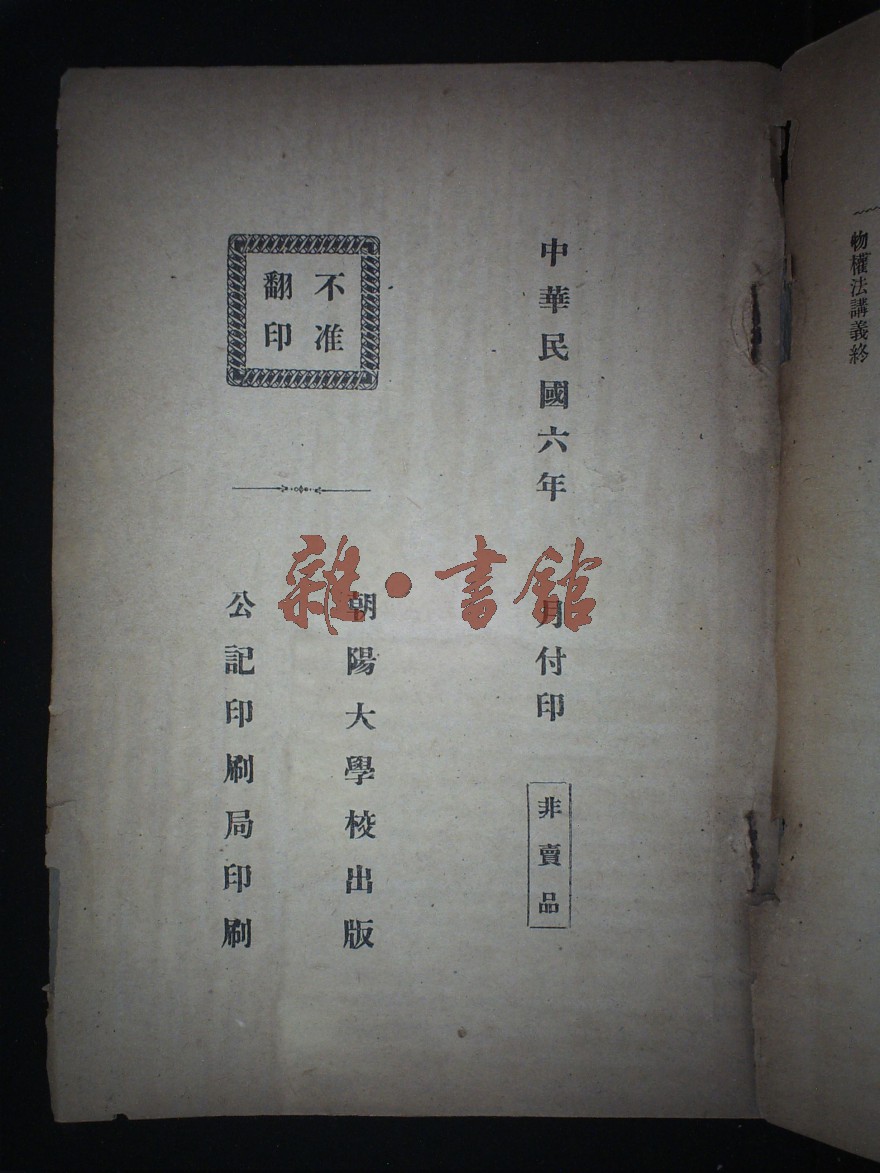 物權法講義終
中華民國六年 月付印
非賣品
不准
翻印
朝陽大學校出版
公記印刷局印刷
雜·書館